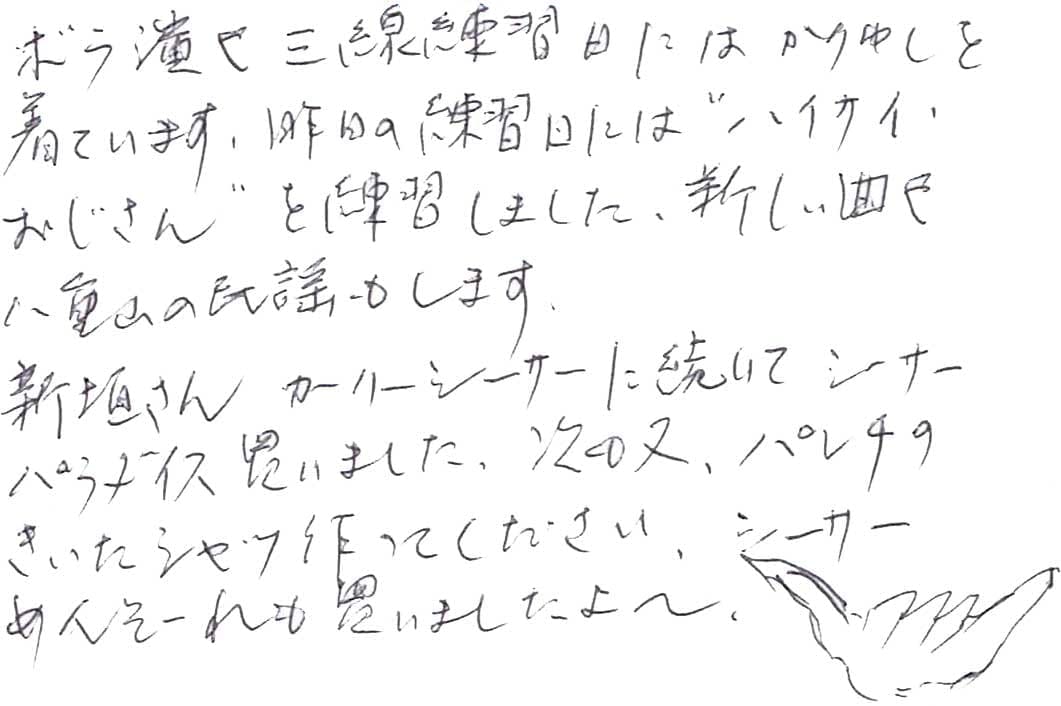 ボラ演や三線練習日にはかりゆしを
着ています、昨日の練習日には"ハイサイ・
おじさん"を練習しました、新しい曲や
八重山の民謡もします、
新垣さん カーリーシーサーに続いてシーサー
パラダイス買いました、次も又、パンチの
きいたシャツ作ってください、シーサー
めんそーれも買いましたよ〜、